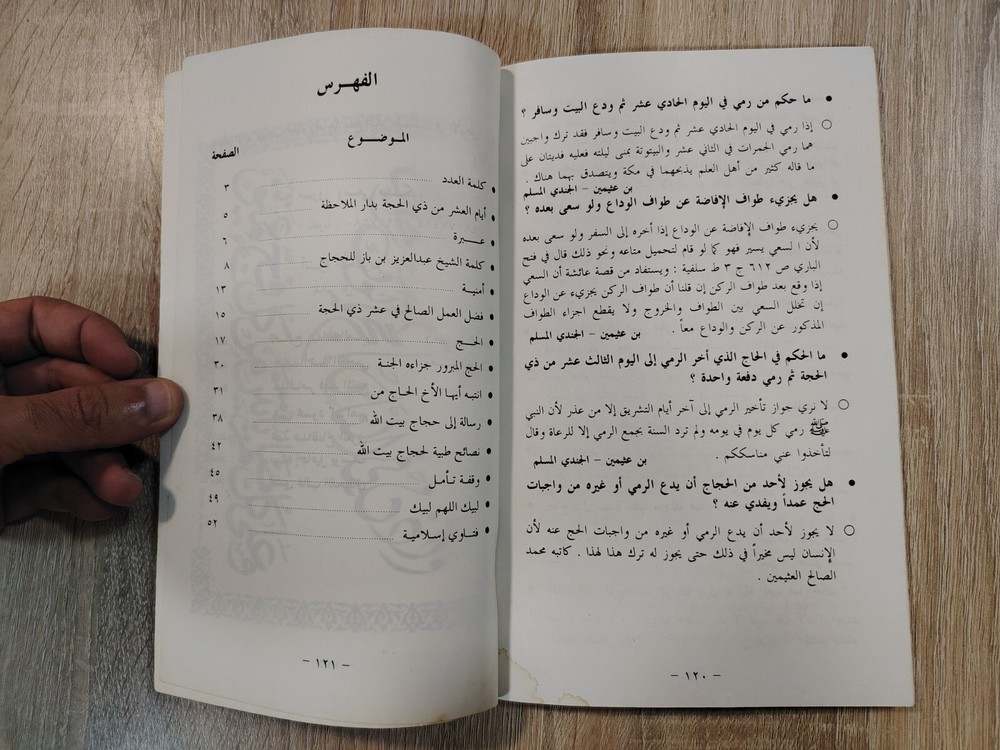 ● ما حكم من رمي في اليوم الحادي عشر ثم ودع البيت وسافر ؟
○ إذا رمي في اليوم الحادي عشر ثم ودع البيت وسافر فقد ترك واجبين
هما رمي الجمرات في الثاني عشر والبيتوتة بمنى ليلته فعليه فديتان على
ما قاله كثير من أهل العلم يذبحهما في مكة ويتصدق بهما هناك .
بن عثيمين – الجندي المسلم
● هل يجزيء طواف الإفاضة عن طواف الوداع ولو سعى بعده ؟
○ يجزيء طواف الإفاضة عن الوداع إذا أخره إلى السفر ولو سعى بعده
لأن ا لسعي يسير فهو كما لو قام لتحميل متاعه ونحو ذلك قال في فتح
الباري ص ٦١٢ ج ٣ ط سلفية : ويستفاد من قصة عائشة أن السعي
إذا وقع بعد طواف الركن إن قلنا أن طواف الركن يجزيء عن الوداع
إن تخلل السعي بين الطواف والخروج ولا يقطع اجزاء الطواف
المذكور عن الركن والوداع معاً .
بن عثيمين – الجندي المسلم
● ما الحكم في الحاج الذي أخر الرمي إلى اليوم الثالث عشر من ذي
الحجة ثم رمي دفعة واحدة ؟
○ لا نري جواز تأخير الرمي إلى آخر أيام التشريق إلا من عذر لأن النبي
ﷺ رمي كل يوم في يومه ولم ترد السنة بجمع الرمي إلا للرعاة وقال
لتأخذوا عني مناسككم .
بن عثيمين – الجندي المسلم
● هل يجوز لأحد من الحجاج أن يدع الرمي أو غيره من واجبات
الحج عمداً ويفدي عنه ؟
○ لا يجوز لأحد أن يدع الرمي أو غيره من واجبات الحج عنه لأن
الإنسان ليس مخيراً في ذلك حتى يجوز له ترك هذا لهذا . كاتبه محمد
الصالح العثيمين .
– ١٢٠ –
الفهـــرس
الموضـــوع الصفحة
● كلمة العدد ٣
● أيام العشر من ذي الحجة بدار الملاحظة ٥
● عـــبرة ٦
● كلمة الشيخ عبدالعزيز بن باز للحجاج ٨
● أمنيـة ١٣
● فضل العمل الصالح في عشر ذي الحجة ١٥
● الحـــج ١٧
● الحج المبرور جزاءه الجنـة ٣٠
● انتبـه أيهـا الأخ الحـاج من ٣١
● رسالة إلى حجاج بيت الله ٣٨
● نصائح طبية لحجاج بيت الله ٤٢
● وقفـة تـأمـل ٤٥
● لبيك اللهم لبيك ٤٩
● فتـاوي إسـلاميـة ٥٢
– ١٢١ –